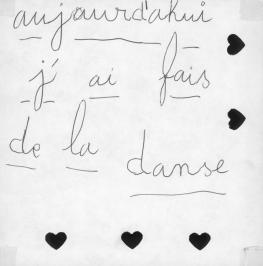 aujourd'ahui
j'ai fais
de la danse